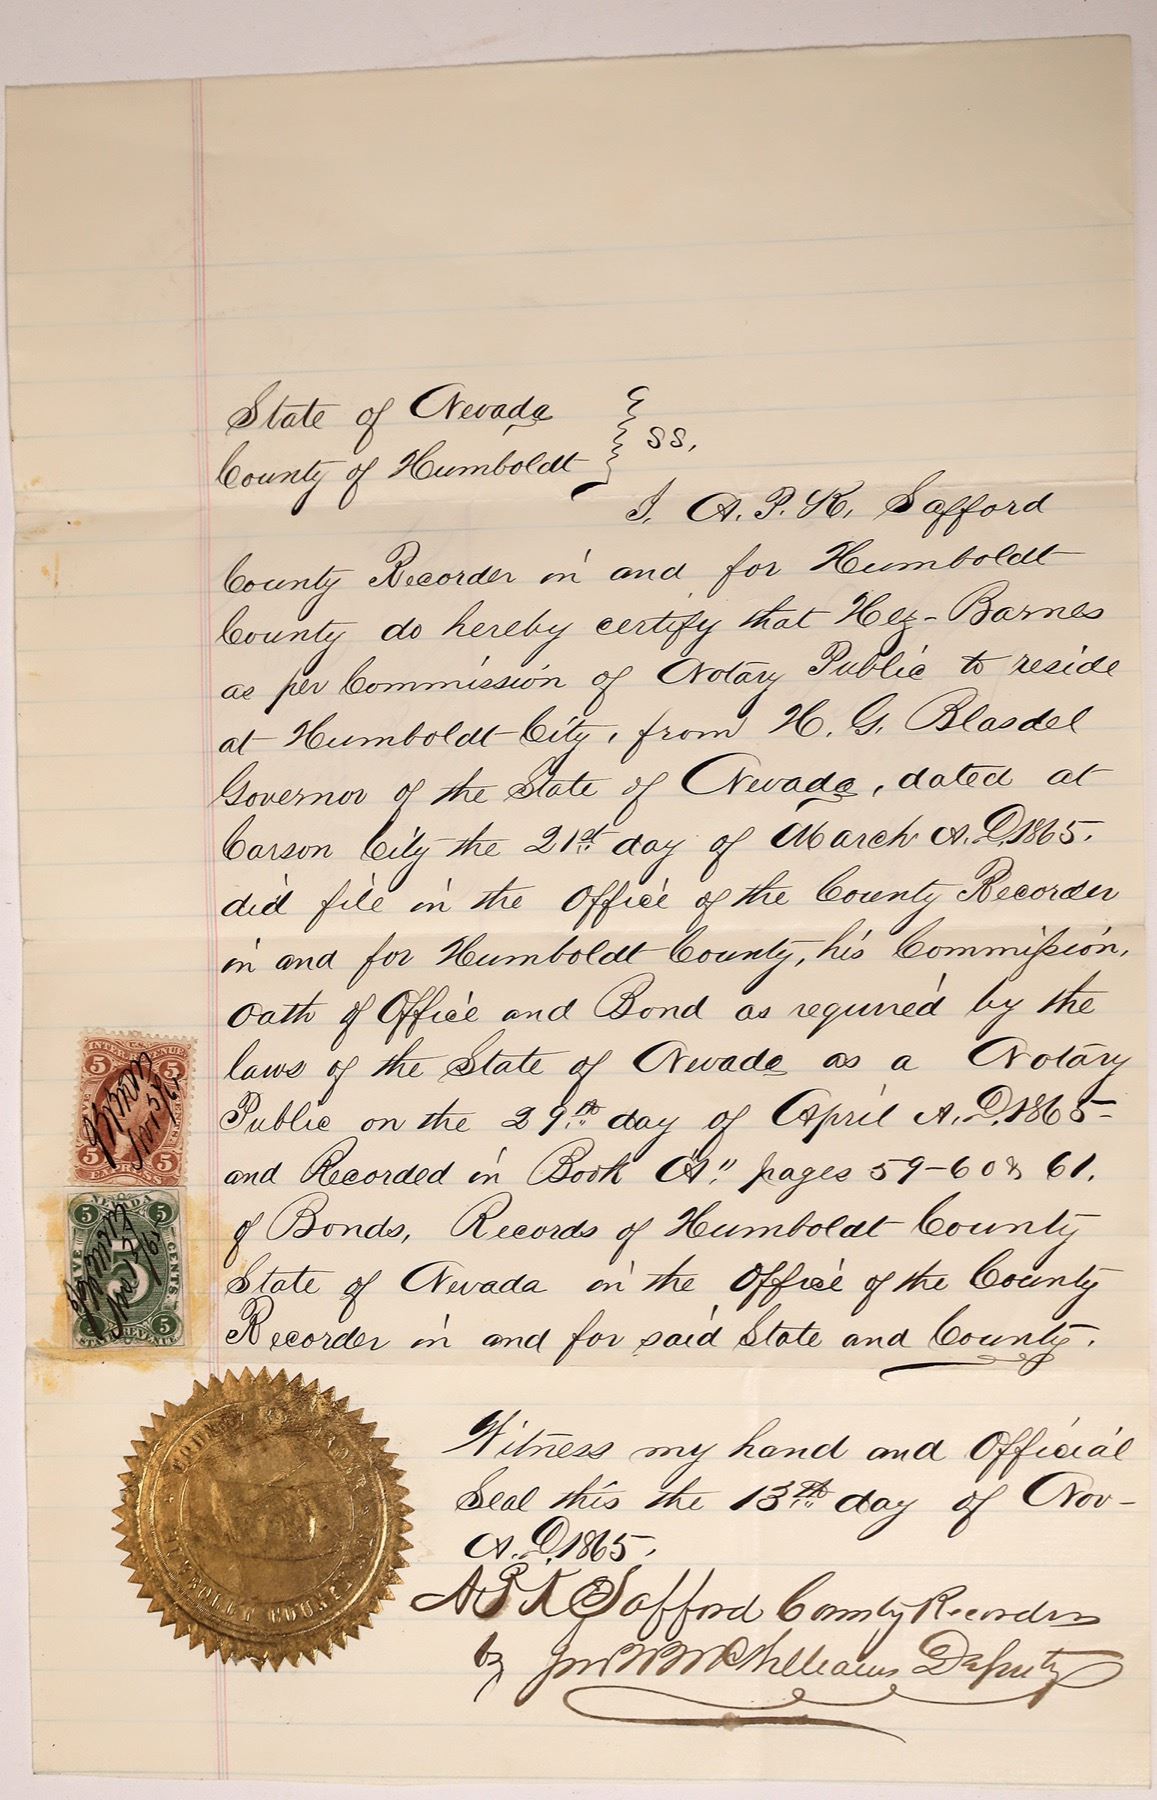 State of Nevada
County of Humboldt } SS.
I. A. P. K. Safford
County Recorder in and for Humboldt
County do hereby certify that Hez- Barnes
as per Commission of Notary Public to reside
at Humboldt City, from H. G. Blasdel
Governor of the State of Nevada, dated at
Carson City the 21st day of March A.D. 1865.
did file in the Office of the County Recorder
in and for Humboldt County, his Commission,
Oath of Office and Bond as required by the
laws of the State of Nevada as a Notary
Public on the 29th day of April A.D. 1865-
and Recorded in Book "A", pages 59-60 & 61.
of Bonds, Records of Humboldt County
State of Nevada in the Office of the County
Recorder in and for said State and County.
INTER. REVENUE
5 5
5 5
EXPRESS
NEVADA
5 5
FIVE CENTS
5
5 5
STATE REVENUE
Witness my hand and Official
Seal this the 13th day of Nov-
A.D. 1865.
A P K Safford County Recorder
by Jno W McWilliams Deputy
HUMBOLDT COUNTY